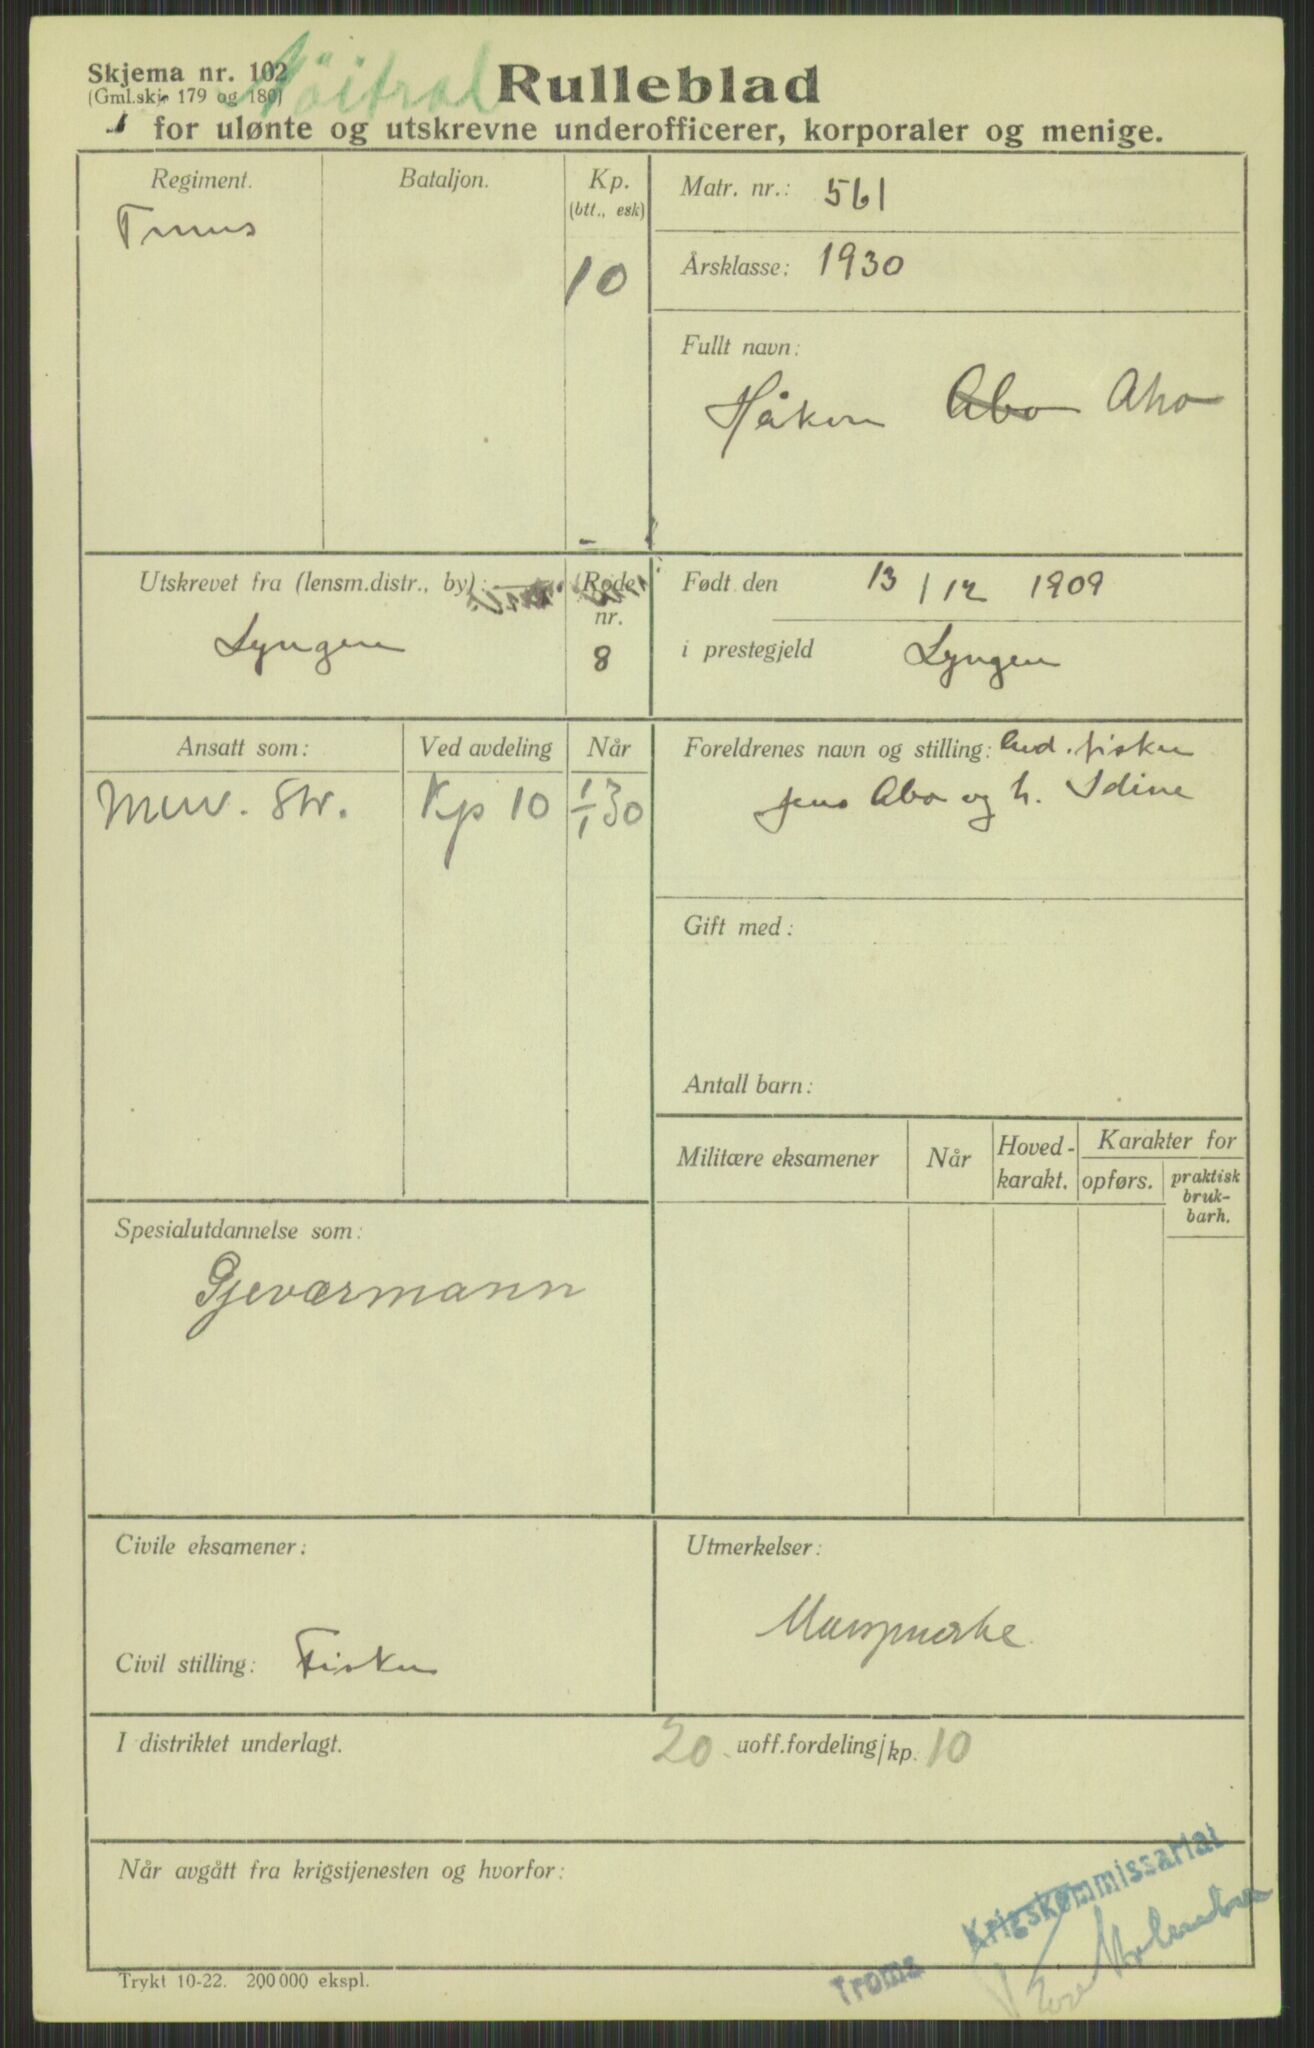 Skjema nr. 102
(Gml.skj. 179 og 180)
Nöitral
Rulleblad
for ulønte og utskrevne underofficerer, korporaler og menige.
Regiment.
Bataljon.
Kp.
(btt., esk)
10
Matr. nr.: 561
Årsklasse: 1930
Fullt navn:
Håkon Abo Aho
Utskrevet fra (lensm.distr., by):
Lyngen
Rode
nr.
8
Født den 13/12 1909
i prestegjeld Lyngen
Ansatt som:
Ved avdeling
Når
Str.
Kp 10
1/1 30
Foreldrenes navn og stilling: fisker
Jens Abo og h. Idine
Gift med:
Antall barn:
Militære eksamener
Når
Hoved-
karakt.
Karakter for
opførs.
praktisk
bruk-
barh.
Spesialutdannelse som:
Gjeværmann
Civile eksamener:
Civil stilling: Fisker
Utmerkelser:
I distriktet underlagt.
20. uoff.fordeling/kp. 10
Når avgått fra krigstjenesten og hvorfor:
Troms Krigskommissariat
Trykt 10-22. 200 000 ekspl.